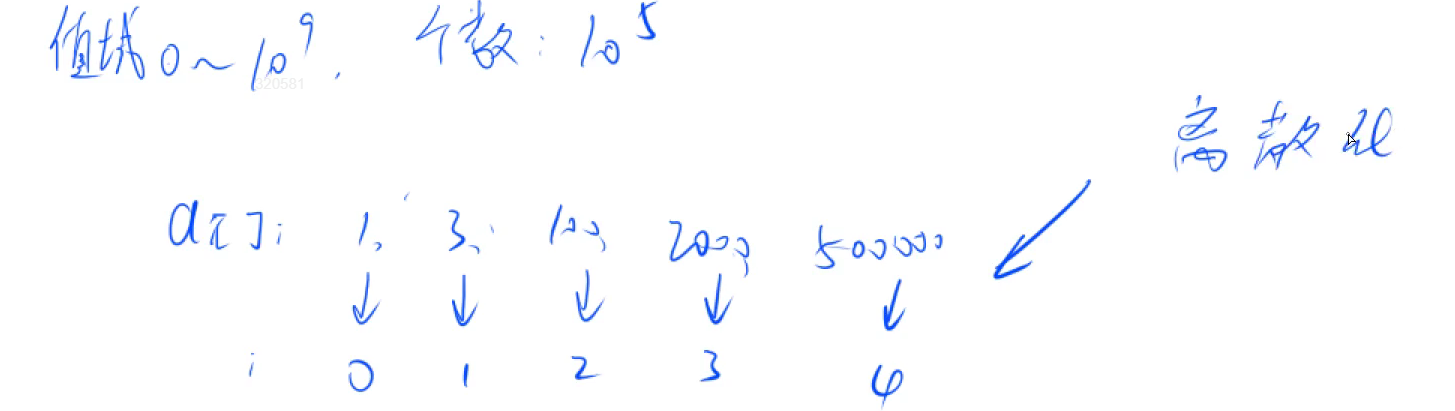 值域 0 ~ 10⁹. 个数: 10⁵
320581
离散化
a[]: 1, 3, 100, 2000, 500000
↓ ↓ ↓ ↓ ↓
i 0 1 2 3 4